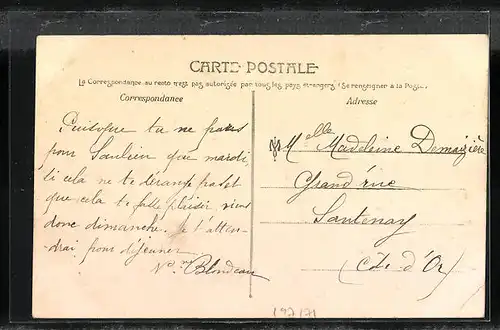 CARTE POSTALE
La Correspondance au recto n'est pas autorisée par tous les pays étrangers (Se renseigner à la Poste)
Correspondance
Puisque tu ne pars
pour Saulieu que mardi,
si cela ne te dérange pas et
que cela te fasse plaisir viens
donc dimanche. Je t'atten-
drai pour déjeuner.
Blondeau
Adresse
Melle Madeleine Demaizière
Grand'rue
Santenay
(Côte d'Or)